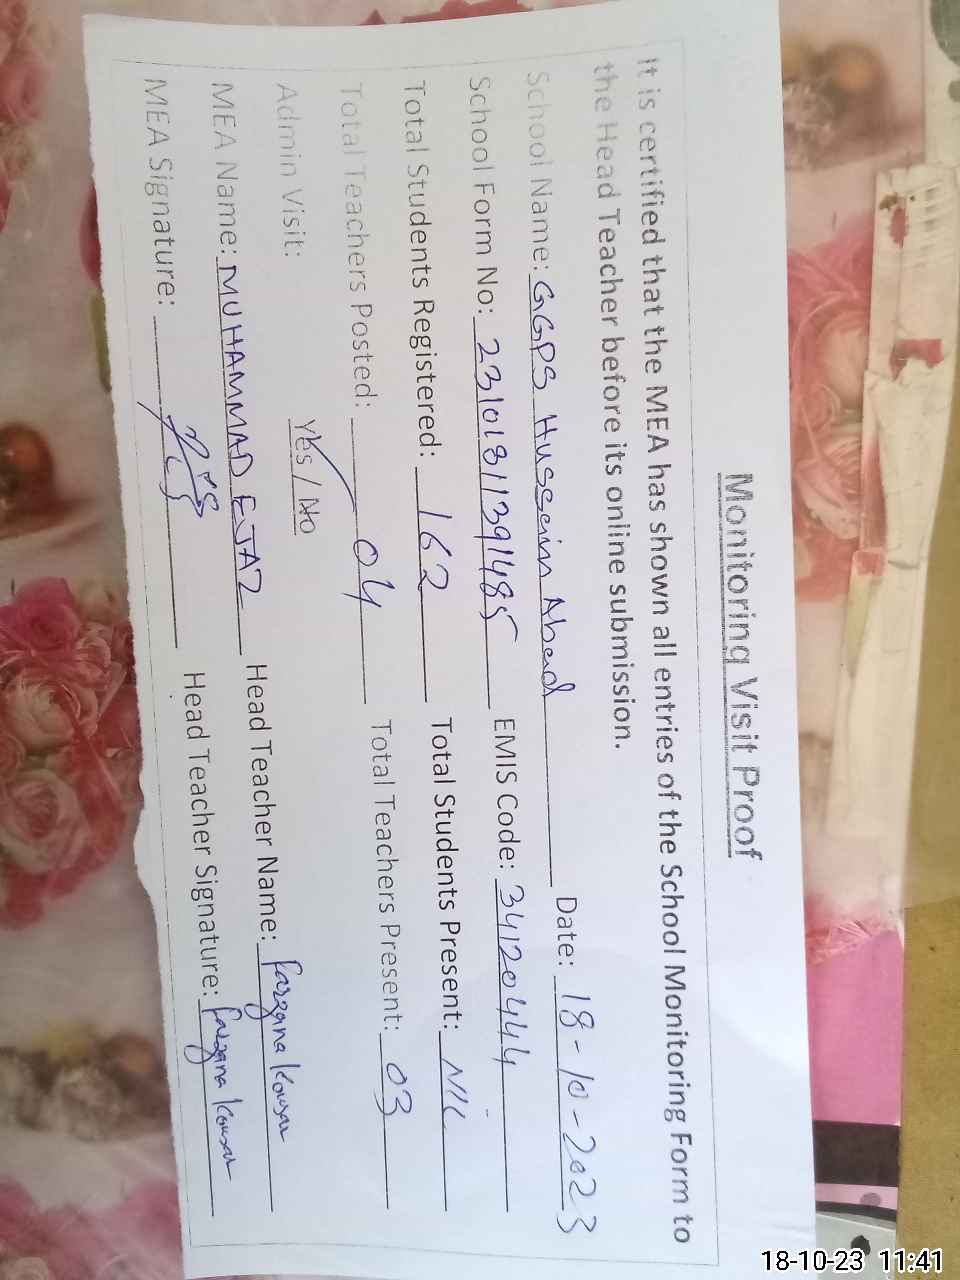 Monitoring Visit Proof
It is certified that the MEA has shown all entries of the School Monitoring Form to
the Head Teacher before its online submission.
School Name: GGPS Hussain Abad Date: 18-10-2023
School Form No: 23101811391485 EMIS Code: 34120444
Total Students Registered: 162 Total Students Present: Nil
Total Teachers Posted: 04 Total Teachers Present: 03
Admin Visit: Yes / No
MEA Name: MUHAMMAD EJAZ Head Teacher Name: farzana kousar
MEA Signature: Head Teacher Signature: farzana kousar
18-10-23 11:41